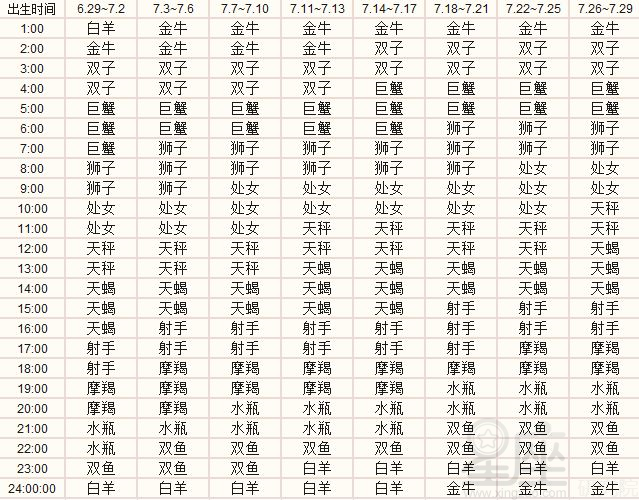 出生时间 6.29~7.2 7.3~7.6 7.7~7.10 7.11~7.13 7.14~7.17 7.18~7.21 7.22~7.25 7.26~7.29
1:00 白羊 金牛 金牛 金牛 金牛 金牛 金牛 金牛
2:00 金牛 金牛 金牛 金牛 双子 双子 双子 双子
3:00 双子 双子 双子 双子 双子 双子 双子 双子
4:00 双子 双子 双子 双子 巨蟹 巨蟹 巨蟹 巨蟹
5:00 巨蟹 巨蟹 巨蟹 巨蟹 巨蟹 巨蟹 巨蟹 巨蟹
6:00 巨蟹 巨蟹 巨蟹 巨蟹 巨蟹 狮子 狮子 狮子
7:00 巨蟹 狮子 狮子 狮子 狮子 狮子 狮子 狮子
8:00 狮子 狮子 狮子 狮子 狮子 狮子 处女 处女
9:00 狮子 狮子 处女 处女 处女 处女 处女 处女
10:00 处女 处女 处女 处女 处女 处女 处女 天秤
11:00 处女 处女 处女 天秤 天秤 天秤 天秤 天秤
12:00 天秤 天秤 天秤 天秤 天秤 天秤 天秤 天蝎
13:00 天秤 天秤 天秤 天蝎 天蝎 天蝎 天蝎 天蝎
14:00 天蝎 天蝎 天蝎 天蝎 天蝎 天蝎 天蝎 天蝎
15:00 天蝎 天蝎 天蝎 天蝎 天蝎 射手 射手 射手
16:00 天蝎 射手 射手 射手 射手 射手 射手 射手
17:00 射手 射手 射手 射手 射手 射手 摩羯 摩羯
18:00 射手 摩羯 摩羯 摩羯 摩羯 摩羯 摩羯 摩羯
19:00 摩羯 摩羯 摩羯 摩羯 摩羯 水瓶 水瓶 水瓶
20:00 摩羯 摩羯 水瓶 水瓶 水瓶 水瓶 水瓶 水瓶
21:00 水瓶 水瓶 水瓶 水瓶 水瓶 双鱼 双鱼 双鱼
22:00 水瓶 双鱼 双鱼 双鱼 双鱼 双鱼 双鱼 双鱼
23:00 双鱼 双鱼 双鱼 白羊 白羊 白羊 白羊 白羊
24:00:00 白羊 白羊 白羊 白羊 白羊 金牛 金牛 金牛